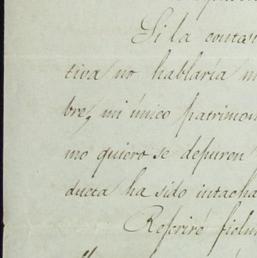 Si la conta
tiva no hablaría
bre, mi único patrimon
mo quiero se depuren
ducta ha sido intacha
Referiré fielm